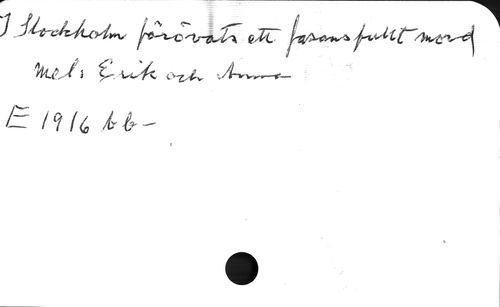 I Stockholm förövats ett fasansfullt mord
mel: Erik och Anna
E 1916 bb-